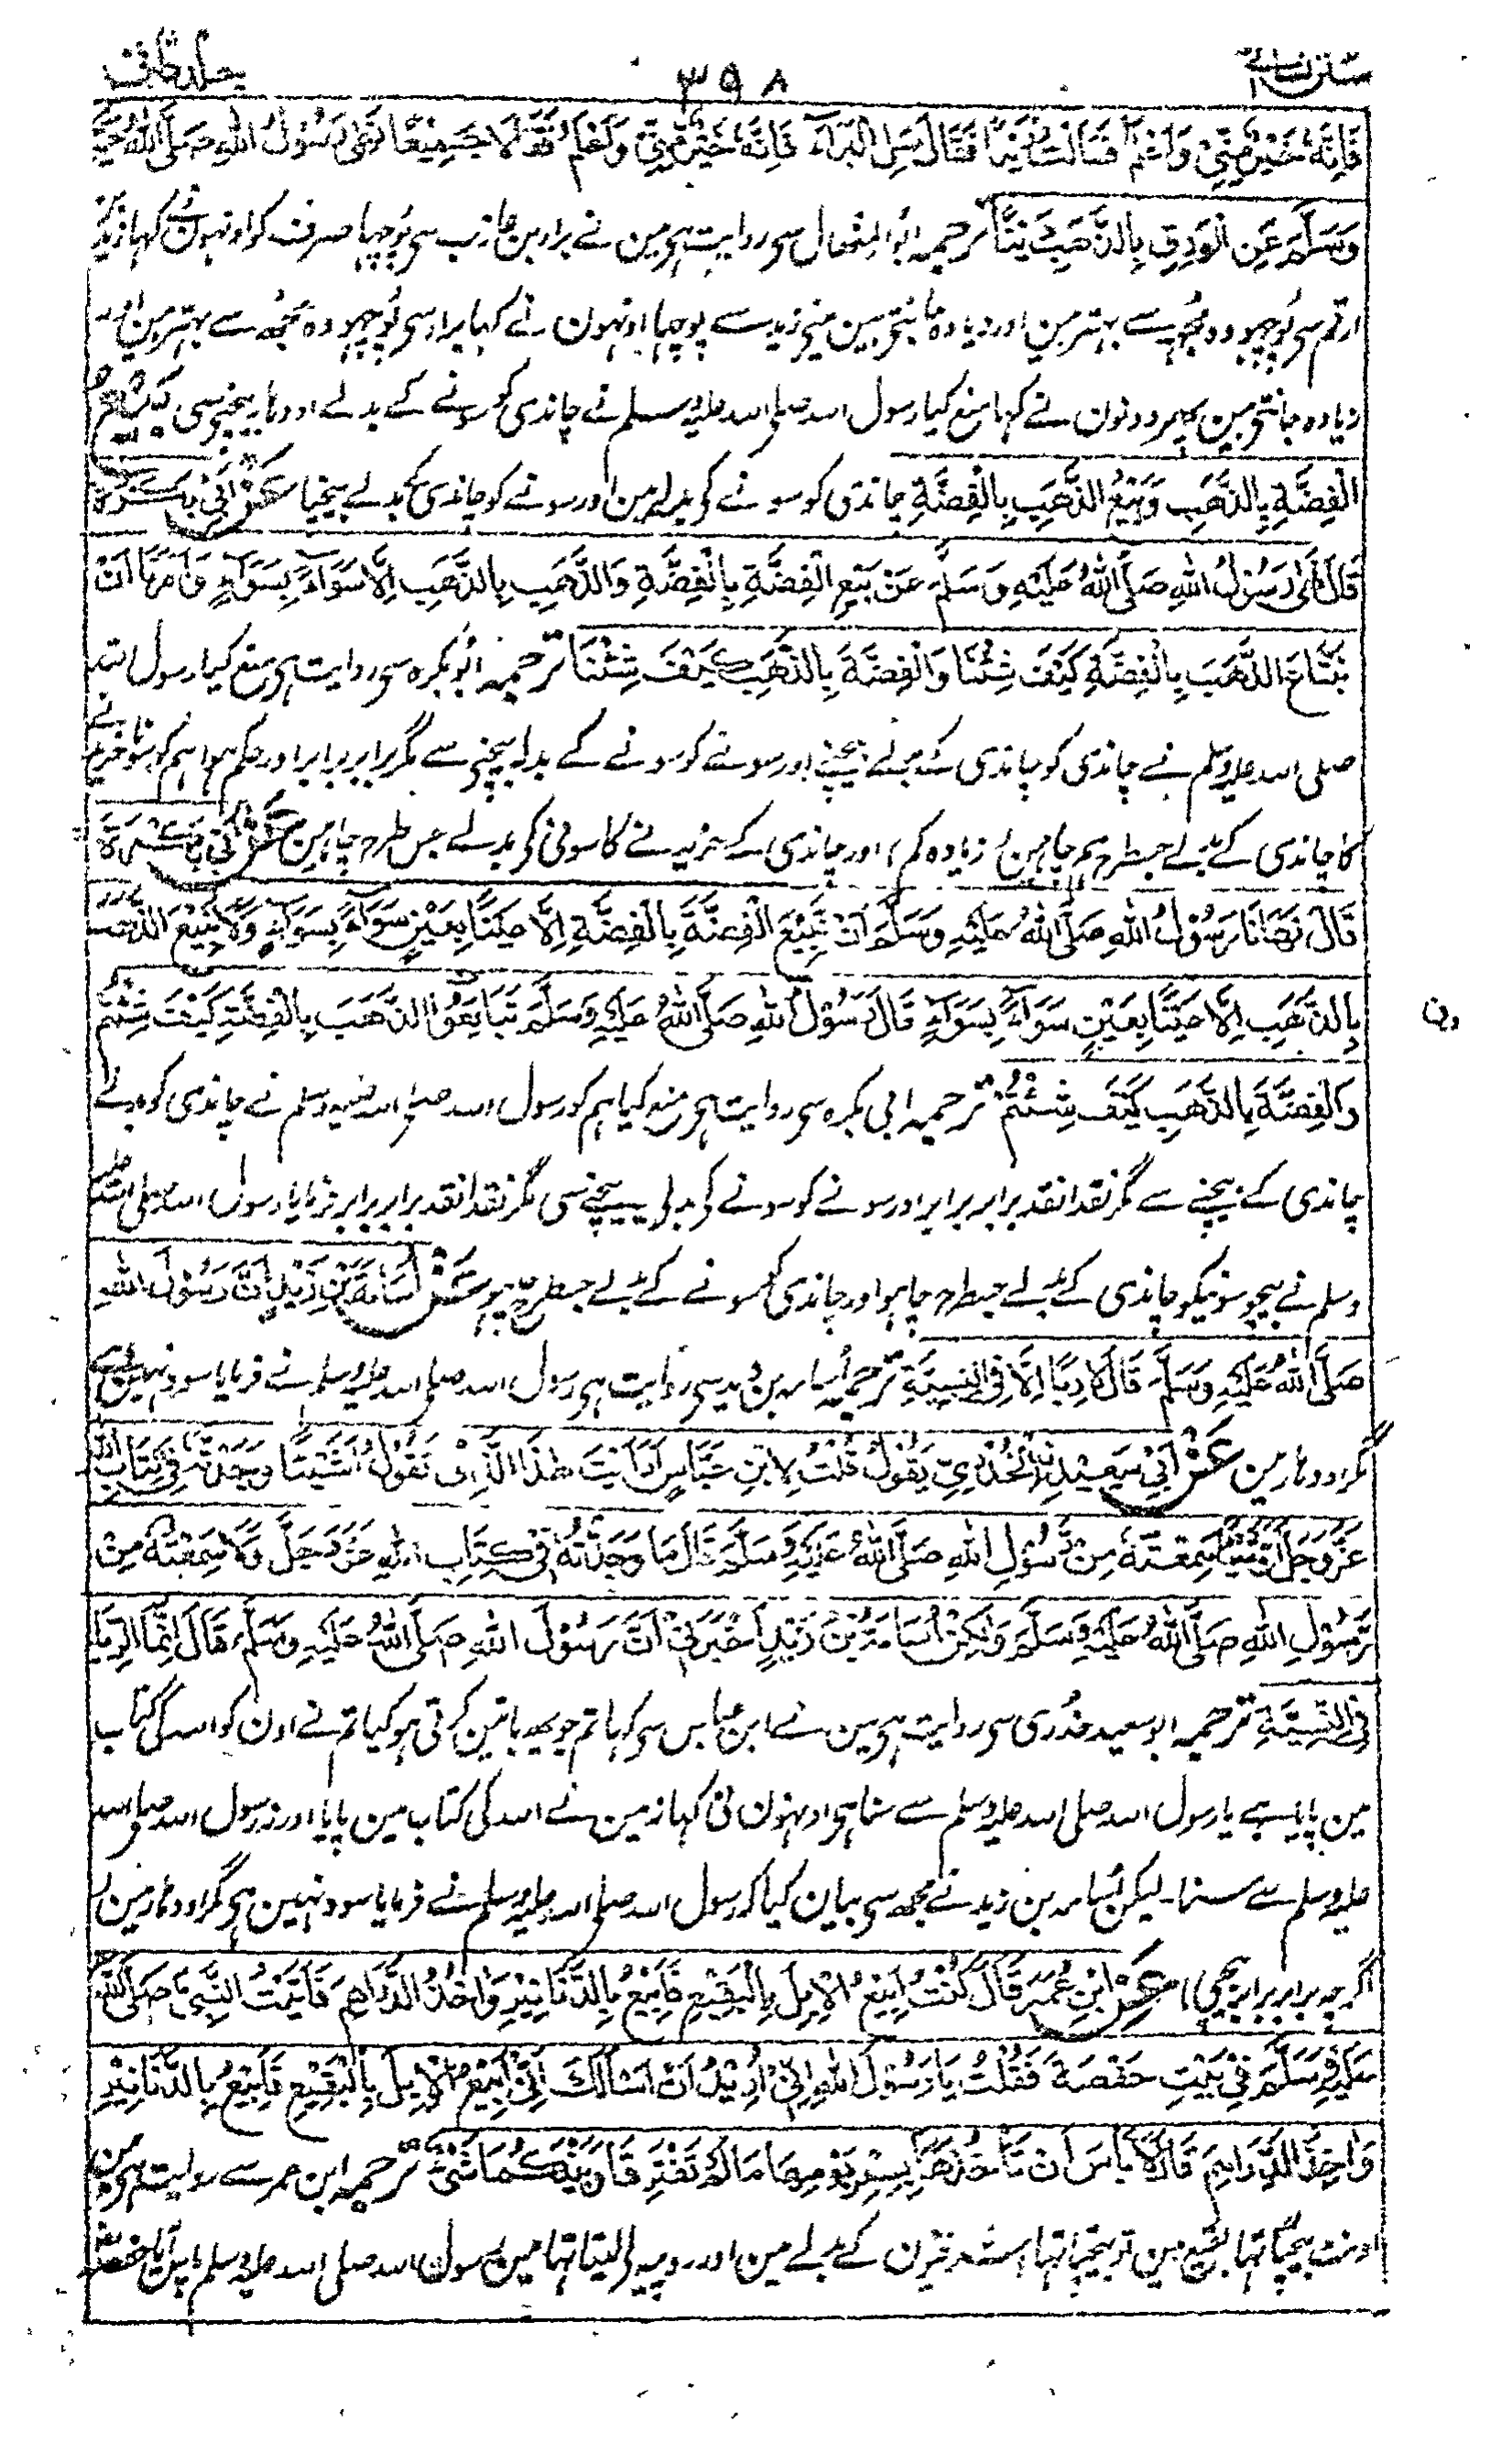 سنن نسائی ۳۹۸ جلد ثانی
فَاِنَّهٗ خَيْرٌ مِّنِّيْ وَاَعْلَمُ فَسَاَلْتُ زَيْدًا فَقَالَ سَلِ الْبَرَآءَ فَاِنَّهٗ خَيْرٌ مِّنِّيْ وَاَعْلَمُ فَقَالَا جَمِيْعًا نَهٰى رَسُوْلُ اللهِ صَلَّى اللهُ عَلَيْهِ
وَسَلَّمَ عَنِ الْوَرِقِ بِالذَّهَبِ دَيْنًا ترجمہ ابو المنہال سی روایت ہی مین نے براء بن عازب سی پوچہا صرف کو اونہون نے کہا زید بن
ارقم سی پوچہو وہ مجہہ سے بہتر ہین اور زیادہ جانتی ہین مینی زید سے پوچہا اونہون نے کہا براء سی پوچہو وہ مجھ سے بہتر ہین اور
زیادہ جانتی ہین پہر دونون نے کہا منع کیا رسول اللہ صلی اللہ علیہ وسلم نے چاندی کو سونے کے بدلے اودہار بیچنی سی بَيْعُ
الْفِضَّةِ بِالذَّهَبِ وَبَيْعُ الذَّهَبِ بِالْفِضَّةِ چاندی کو سونے کی بدلے مین اور سونے کو چاندی کی بدلے بیچنا عَنْ اَبِيْ بَكْرَةَ
قَالَ نَهٰى رَسُوْلُ اللهِ صَلَّى اللهُ عَلَيْهِ وَسَلَّمَ عَنْ بَيْعِ الْفِضَّةِ بِالْفِضَّةِ وَالذَّهَبِ بِالذَّهَبِ اِلَّا سَوَآءً بِسَوَآءٍ وَاَمَرَنَا اَنْ
نَبْتَاعَ الذَّهَبَ بِالْفِضَّةِ كَيْفَ شِئْنَا وَالْفِضَّةَ بِالذَّهَبِ كَيْفَ شِئْنَا ترجمہ ابو بکرہ سی روایت ہی منع کیا رسول اللہ
صلی اللہ علیہ وسلم نے چاندی کو چاندی کے بدلے بیچنے اور سونے کو سونے کے بدلے بیچنی سے مگر برابر برابر اور حکم ہوا ہم کو سونا خریدنے
کا چاندی کے بدلے جسطرح ہم چاہین (زیادہ کم) اور چاندی کے خریدنے کا سونی کی بدلے جس طرح چاہین عَنْ اَبِيْ بَكْرَةَ
قَالَ نَهَانَا رَسُوْلُ اللهِ صَلَّى اللهُ عَلَيْهِ وَسَلَّمَ اَنْ نَبِيْعَ الْفِضَّةَ بِالْفِضَّةِ اِلَّا عَيْنًا بِعَيْنٍ سَوَآءً بِسَوَآءٍ وَلَا نَبِيْعَ الذَّهَبَ
بِالذَّهَبِ اِلَّا عَيْنًا بِعَيْنٍ سَوَآءً بِسَوَآءٍ قَالَ رَسُوْلُ اللهِ صَلَّى اللهُ عَلَيْهِ وَسَلَّمَ تَبَايَعُوا الذَّهَبَ بِالْفِضَّةِ كَيْفَ شِئْتُمْ
وَالْفِضَّةَ بِالذَّهَبِ كَيْفَ شِئْتُمْ ترجمہ ابی بکرہ سی روایت ہی منع کیا ہم کو رسول اللہ صلی اللہ علیہ وسلم نے چاندی کو بدلے
چاندی کے بیچنے سے مگر نقدا نقد برابر برابر اور سونے کو سونے کی بدلی بیچنے سی مگر نقدا نقد برابر برابر فرمایا رسول اللہ صلی اللہ علیہ
وسلم نے بیچو سونیکو چاندی کے بدلے جسطرح چاہو اور چاندی کو سونے کے بدلے جسطرح چاہو عَنْ اُسَامَةَ بْنِ زَيْدٍ اَنَّ رَسُوْلَ اللهِ
صَلَّى اللهُ عَلَيْهِ وَسَلَّمَ قَالَ لَا رِبًا اِلَّا فِي النَّسِيْئَةِ ترجمہ اسامہ بن زید سی روایت ہی رسول اللہ صلی اللہ علیہ وسلم نے فرمایا سود نہین ہی
مگر اودہار مین عَنْ اَبِيْ سَعِيْدِ نِ الْخُدْرِيِّ يَقُوْلُ قُلْتُ لِابْنِ عَبَّاسٍ اَرَاَيْتَ هٰذَا الَّذِيْ تَقُوْلُ اَشَيْئًا وَجَدْتَّهٗ فِيْ كِتَابِ اللهِ
عَزَّ وَجَلَّ اَوْ شَيْئًا سَمِعْتَهٗ مِنْ رَّسُوْلِ اللهِ صَلَّى اللهُ عَلَيْهِ وَسَلَّمَ قَالَ مَا وَجَدْتُّهٗ فِيْ كِتَابِ اللهِ عَزَّ وَجَلَّ وَلَا سَمِعْتُهٗ مِنْ
رَّسُوْلِ اللهِ صَلَّى اللهُ عَلَيْهِ وَسَلَّمَ وَلٰكِنْ اُسَامَةُ بْنُ زَيْدٍ اَخْبَرَنِيْ اَنَّ رَسُوْلَ اللهِ صَلَّى اللهُ عَلَيْهِ وَسَلَّمَ قَالَ اِنَّمَا الرِّبَا
فِي النَّسِيْئَةِ ترجمہ ابو سعید خدری سی روایت ہی مین نے ابن عباس سی کہا تم جو یہ باتین کرتی ہو کیا تم نے اون کو اللہ کی کتاب
مین پایا ہے یا رسول اللہ صلی اللہ علیہ وسلم سے سنا ہی اونہون نی کہا نہ مین نے اللہ کی کتاب مین پایا اور نہ رسول اللہ صلی اللہ
علیہ وسلم سے سنا۔ لیکن اسامہ بن زید نے مجھ سی بیان کیا کہ رسول اللہ صلی اللہ علیہ وسلم نے فرمایا سود نہین ہی مگر اودہار مین (
اگرچہ برابر برابر بیچی) عَنِ ابْنِ عُمَرَ قَالَ كُنْتُ اَبِيْعُ الْاِبِلَ بِالْبَقِيْعِ فَاَبِيْعُ بِالدَّنَانِيْرِ وَاٰخُذُ الدَّرَاهِمَ فَاَتَيْتُ النَّبِيَّ صَلَّى اللهُ
عَلَيْهِ وَسَلَّمَ فِيْ بَيْتِ حَفْصَةَ فَقُلْتُ يَا رَسُوْلَ اللهِ اِنِّيْ اُرِيْدُ اَنْ اَسْاَلَكَ اِنِّيْ اَبِيْعُ الْاِبِلَ بِالْبَقِيْعِ فَاَبِيْعُ بِالدَّنَانِيْرِ
وَاٰخُذُ الدَّرَاهِمَ قَالَ لَا بَاْسَ اَنْ تَاْخُذَهَا بِسِعْرِ يَوْمِهَا مَا لَمْ تَفْتَرِقَا وَبَيْنَكُمَا شَيْءٌ ترجمہ ابن عمر سے روایت ہی مین
اونٹ بیچتا تہا بقیع مین تو بیچتا تہا اشرفیون کے بدلے مین اور روپیہ لیتا تہا مین رسول اللہ صلی اللہ علیہ وسلم پاس آیا